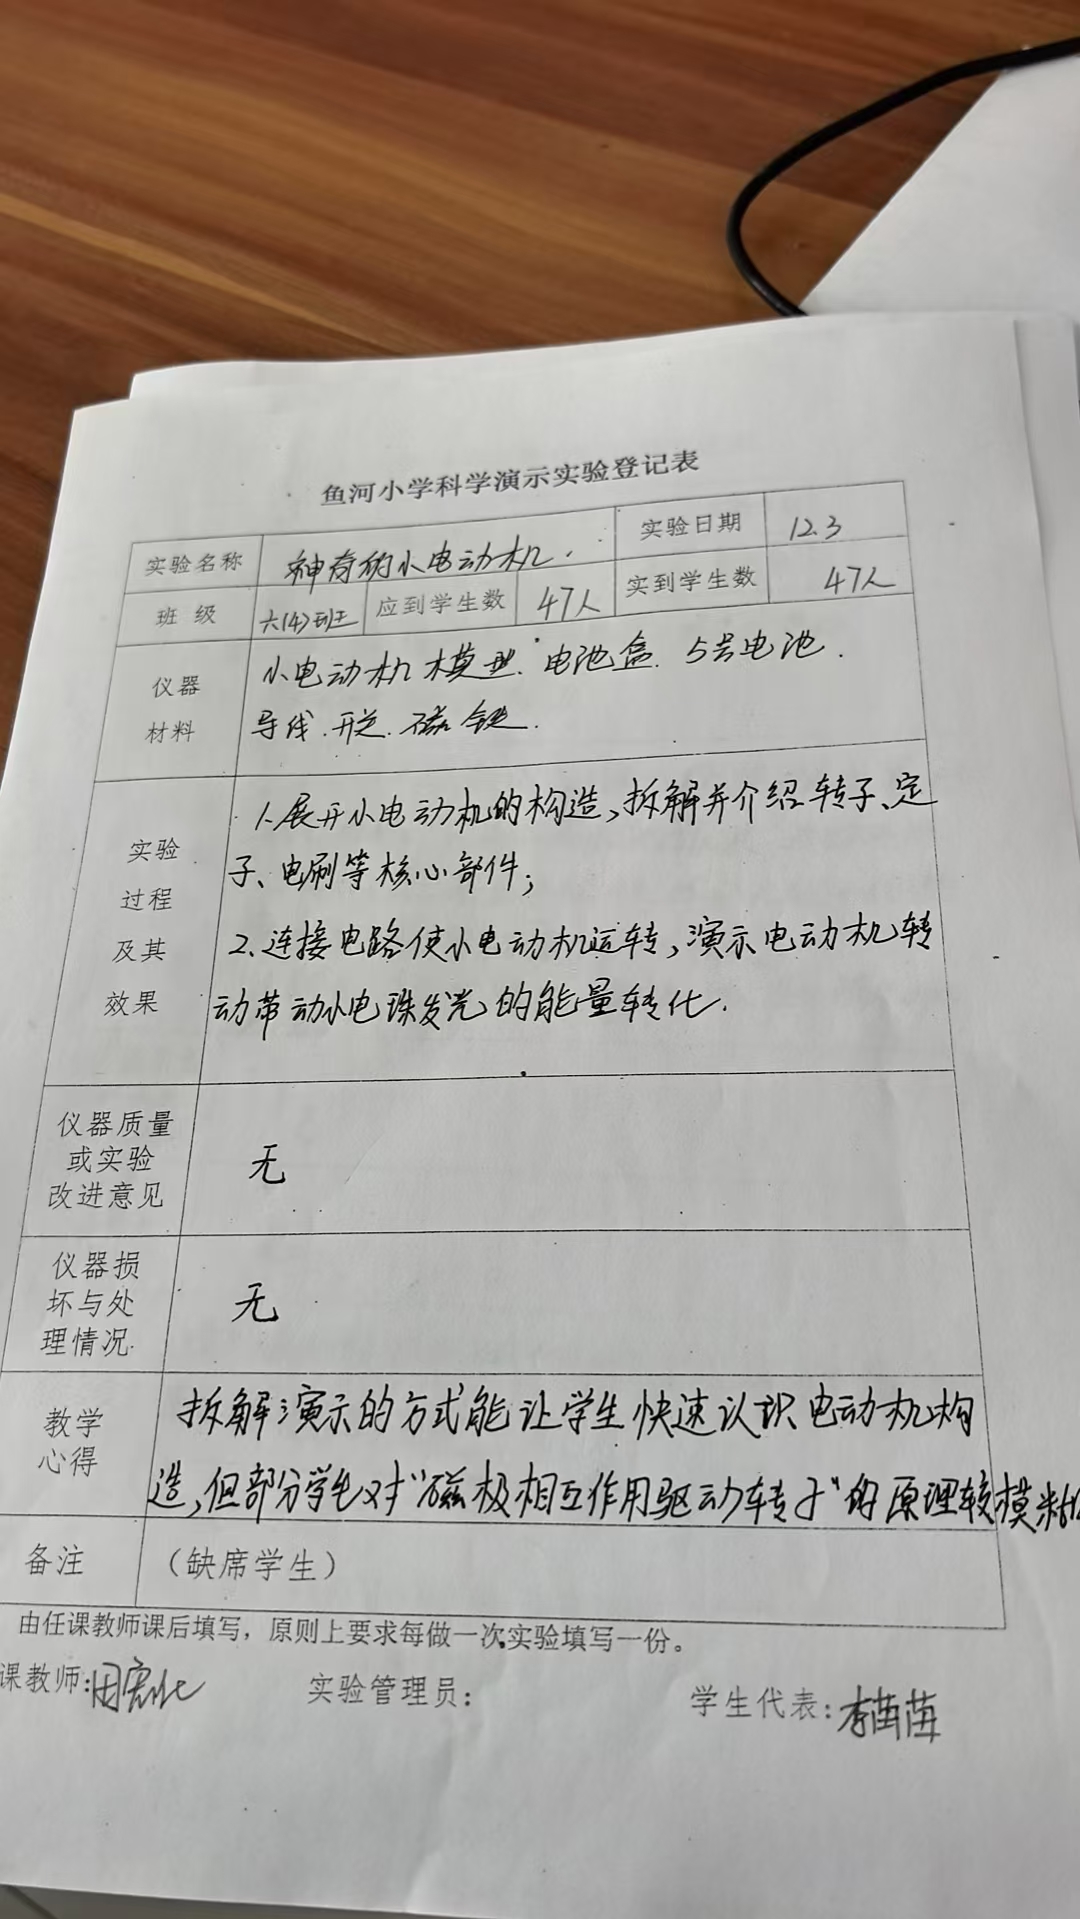 鱼河小学科学演示实验登记表
实验名称 神奇的小电动机. 实验日期 12.3
班级 六(4)班 应到学生数 47人 实到学生数 47人
仪器 小电动机模型. 电池盒. 5号电池.
材料 导线. 开关. 磁铁.
1.展开小电动机的构造,拆解并介绍转子、定
实验 子、电刷等核心部件;
过程
及其 2.连接电路使小电动机运转,演示电动机转
效果 动带动小电珠发光的能量转化.
仪器质量
或实验 无
改进意见
仪器损
坏与处 无
理情况
教学 拆解演示的方式能让学生快速认识电动机构
心得 造,但部分学生对"磁极相互作用驱动转子"的原理较模糊
备注 (缺席学生)
由任课教师课后填写,原则上要求每做一次实验填写一份。
课教师: 实验管理员: 学生代表: